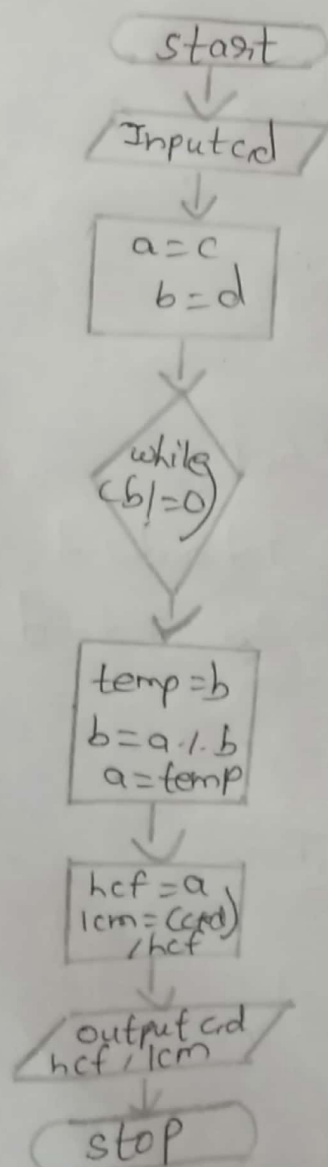 start
Input c,d
a=c
b=d
while
(b!=0)
temp=b
b=a.1.b
a=temp
hcf=a
lcm=(c*d)
/hcf
output c,d
hcf, lcm
stop